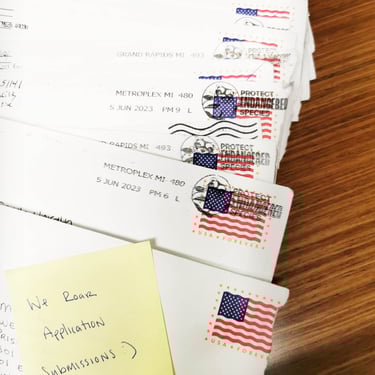 GRAND RAPIDS MI 493
PROTECT
METROPLEX MI 480
5 JUN 2023 PM 9 L
PROTECT
ENDANGERED
SPECIES
RAPIDS MI 493
PROTECT
ENDANGERED
SPECIES
METROPLEX MI 480
5 JUN 2023 PM 6 L
PROTECT
ENDANGERED
SPECIES
USA FOREVER
USA FOREVER
We Roar
Application
Submissions :)